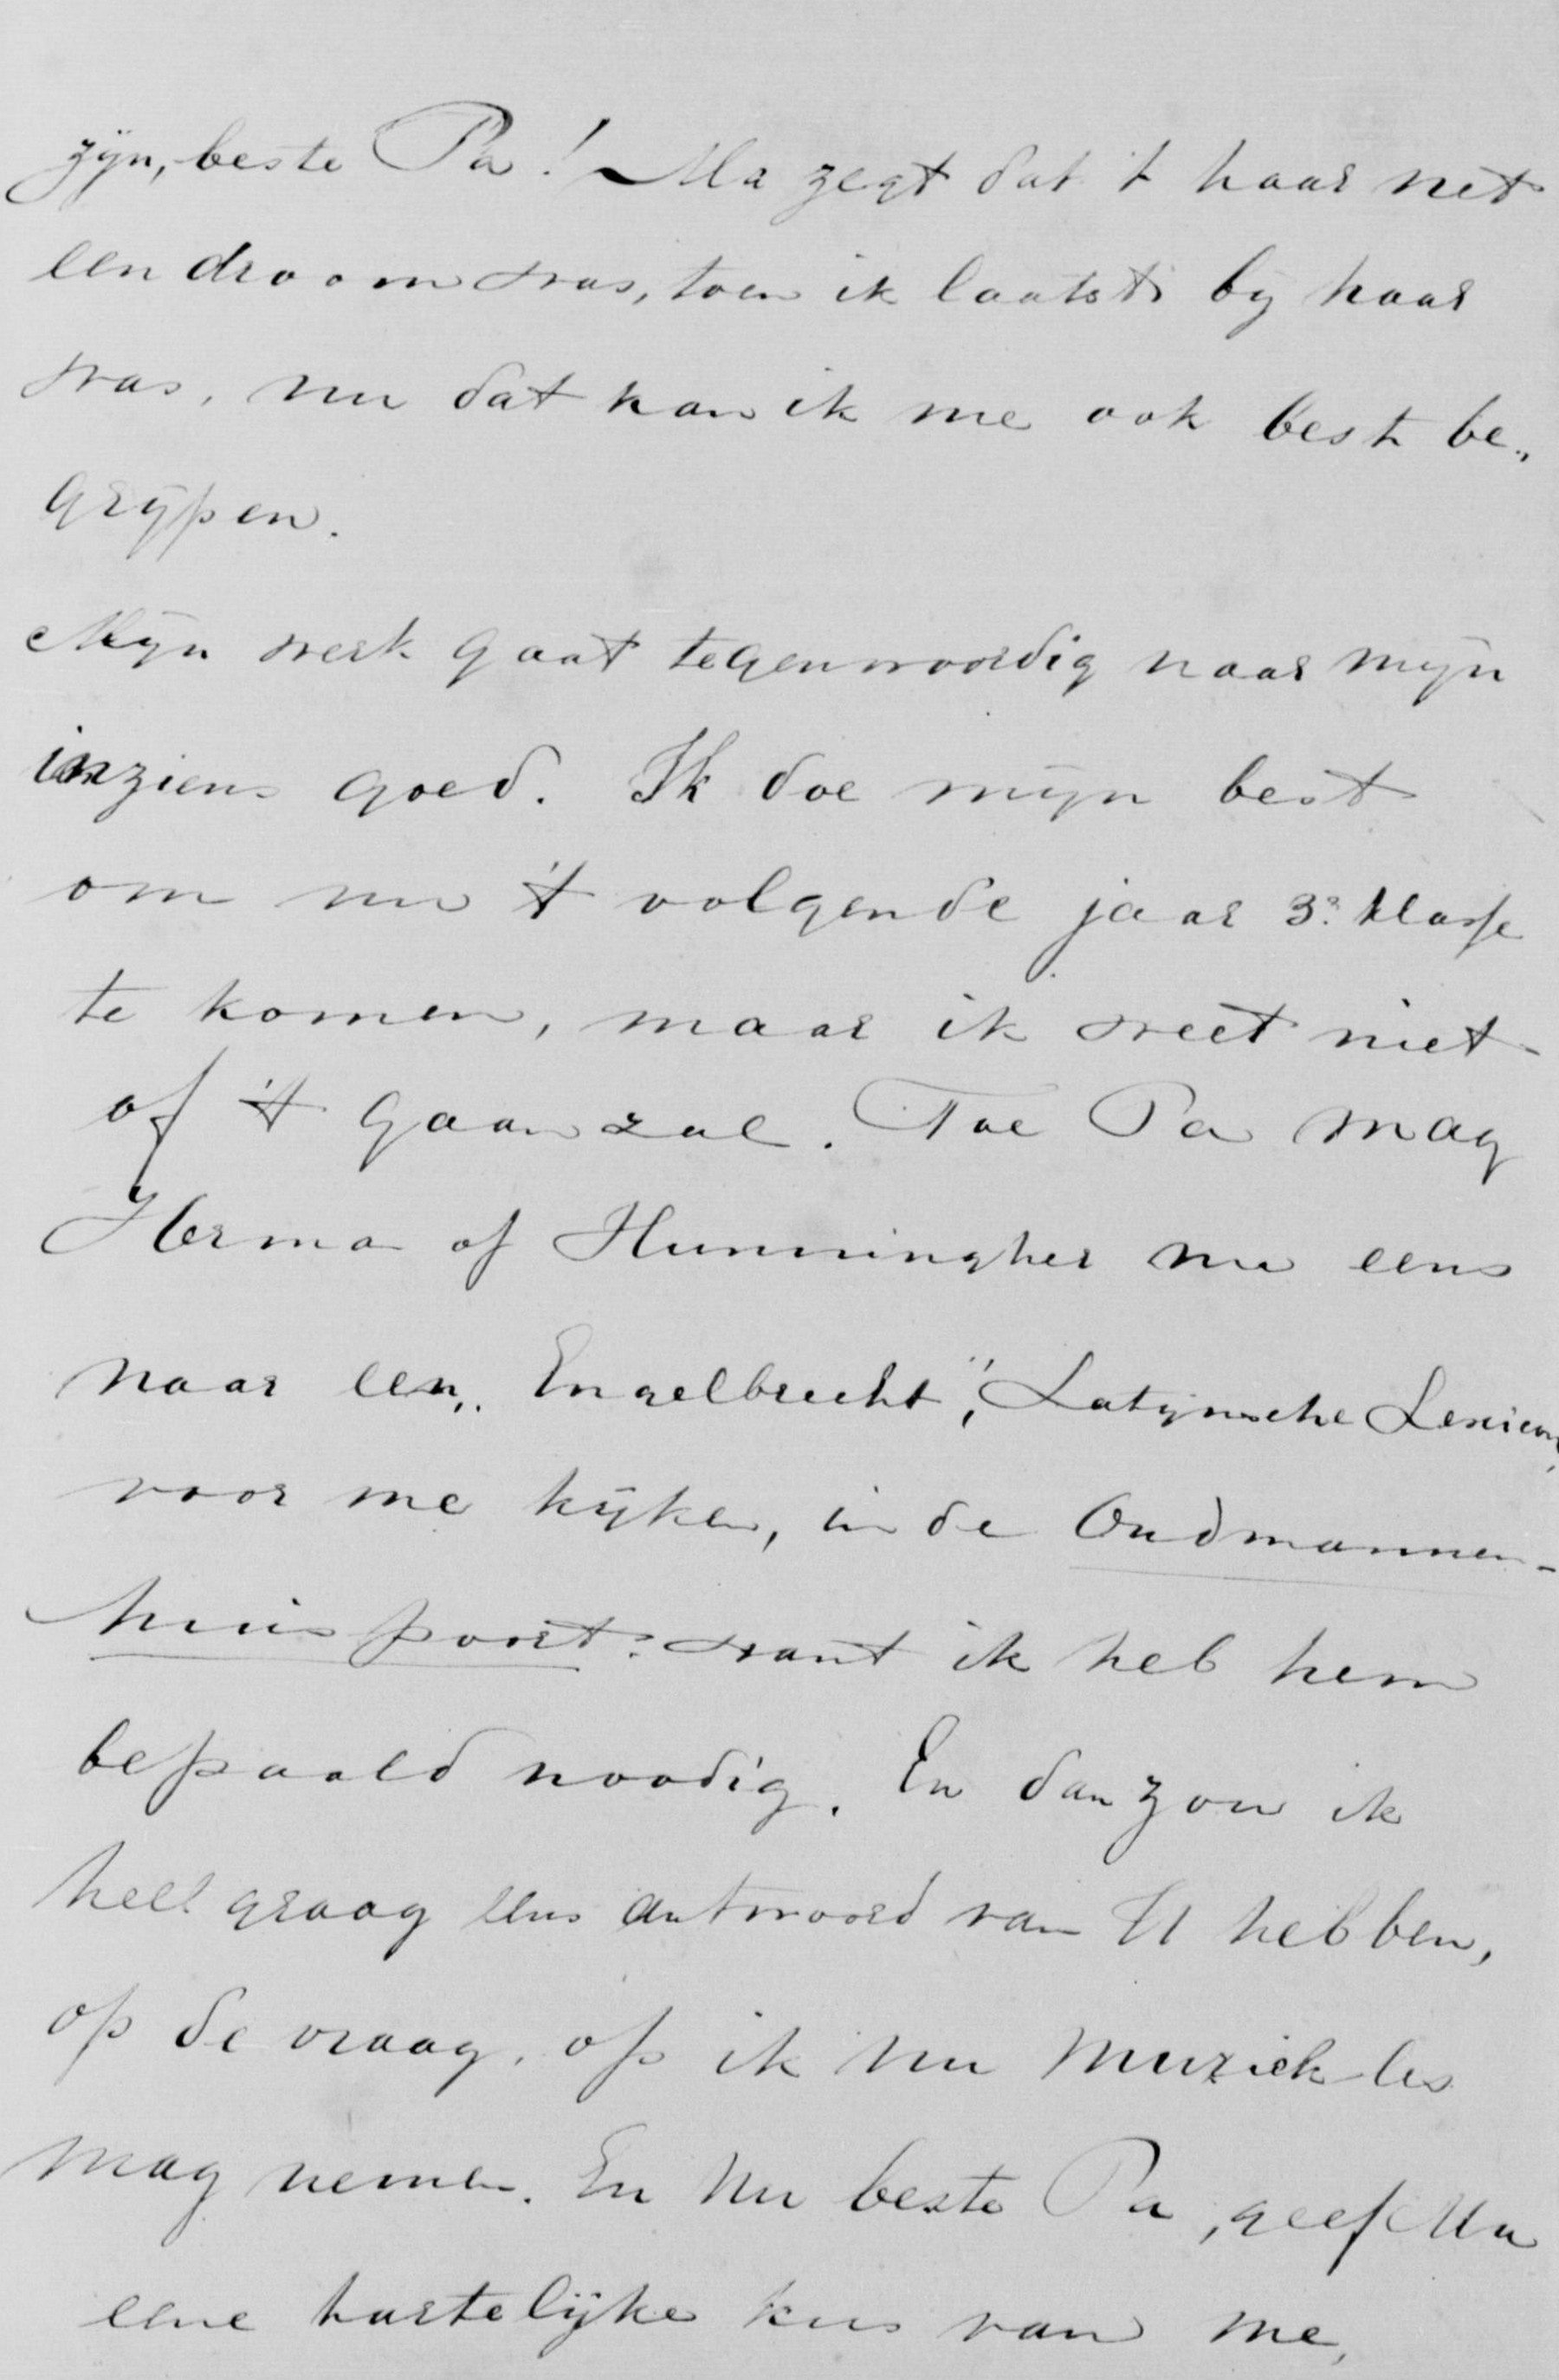 zijn, beste Pa! Ma zegt dat 't haar net
een droom was, toen ik laatst bij haar
was, nu dat kan ik me ook best be„
grijpen.
Mijn werk gaat tegenwoordig naar mijn
inziens goed. Ik doe mijn best
om nu 't volgende jaar 3e klasse
te komen, maar ik weet niet
of 't gaan zal. Toe Pa mag
Herma of Hunningher nu eens
naar een „Engelbrecht", Latijnsche Lexicon,
voor me kijken, in de Oudmannen-
huispoort: want ik heb hem
bepaald noodig. En dan zou ik
heel graag eens antwoord van U hebben,
op de vraag, of ik nu muziekles
mag nemen. En nu beste Pa, geef Ma
eene hartelijke kus van me,